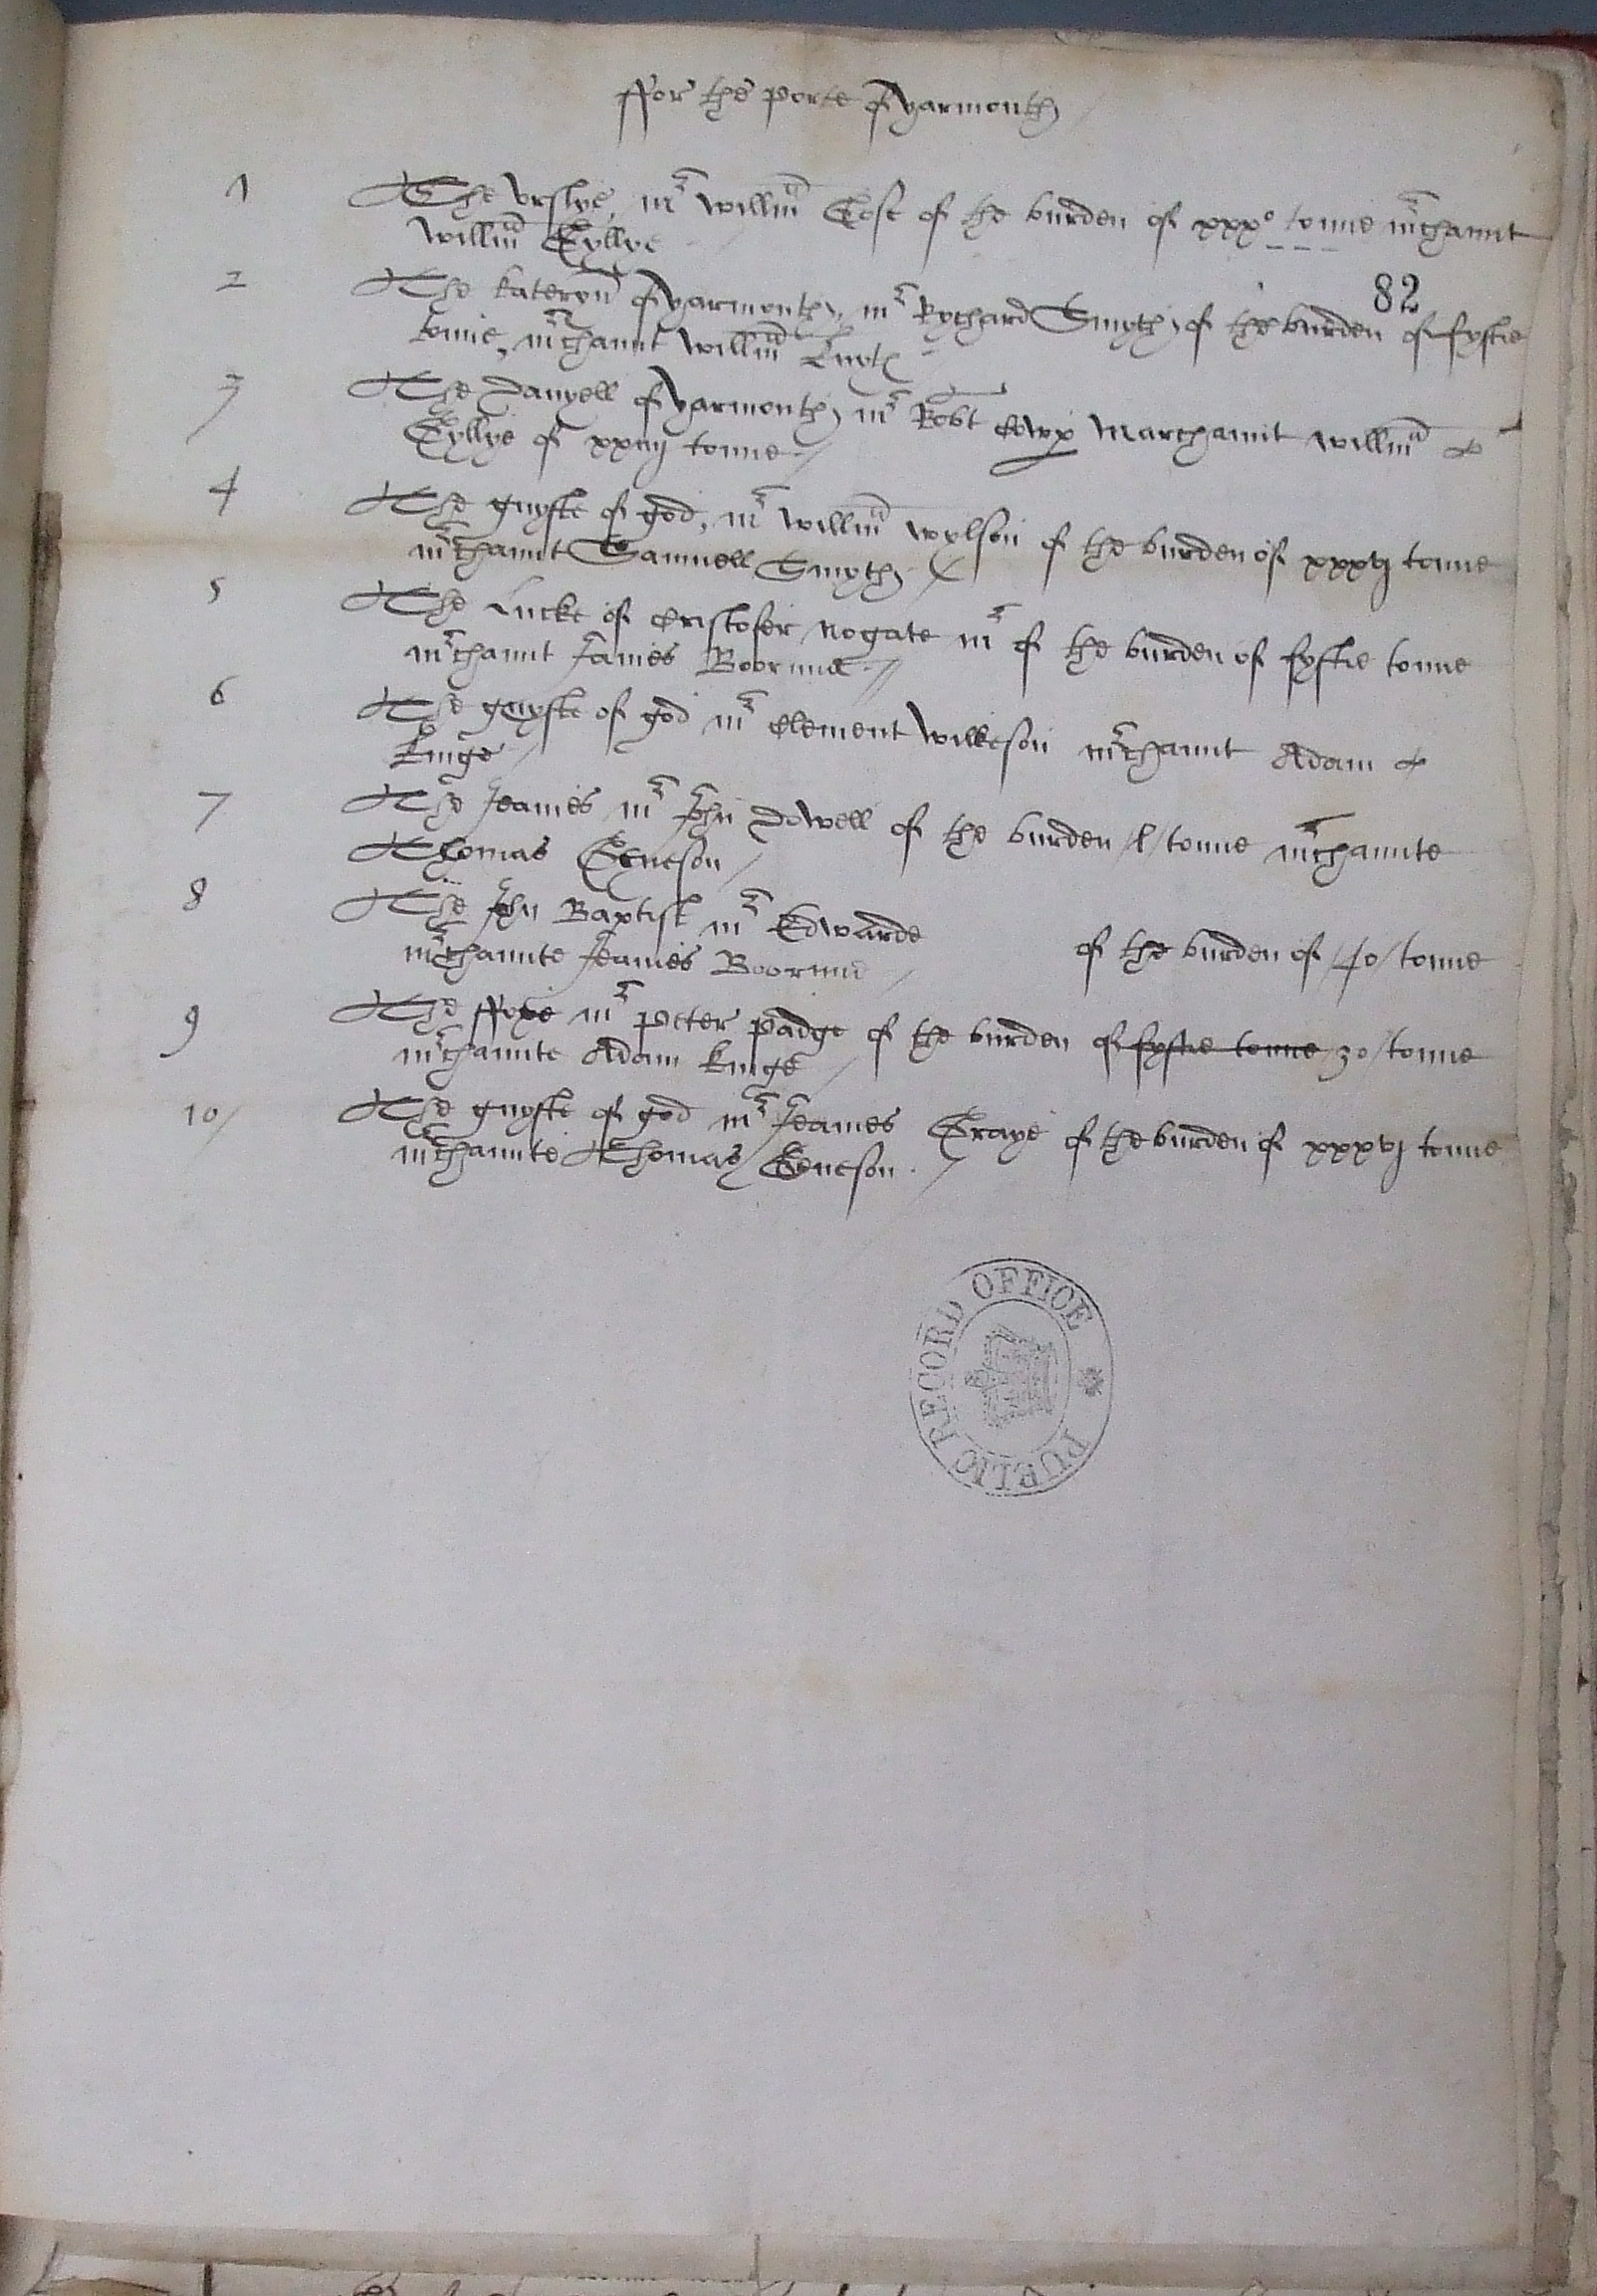 ffor the porte of yarmouth
1 The vrslye, mr willm Cose of the burden of xxxo tonne mrchaunt
willm Eyllye
82
2 The kateryn of yarmouth, mr Rychard Smyth of the burden of fyftie
tonne, mrchaunt willm
3 The Danyell of yarmouth mr Robt marchaunt willm
Eyllye of xxiiij tonne
4 The guyfte of god, mr willm wylson of the burden of xxxvj tonne
mrchaunt Samuell Smyth
5 The Lucke of Cristofer nogate mr of the burden of fyftie tonne
mrchaunt James Boormū
6 The guyfte of god mr Clement wilkeson mrchaunt Adam
kinge
7 The Jeames mr John Dowell of the burden /l/ tonne mrchaunte
Thomas
8 The John Baptist mr Edwarde of the burden of /40/ tonne
mrchaunte Jeames Boormū
9 The ffoxe mr peter padge of the burden of fyftie tonne 30/ tonne
mrchaunte Adam kinge
10/ The guyfte of god mr Jeames Graye of the burden of xxxvj tonne
mrchaunte Thomas
PUBLIC RECORD OFFICE